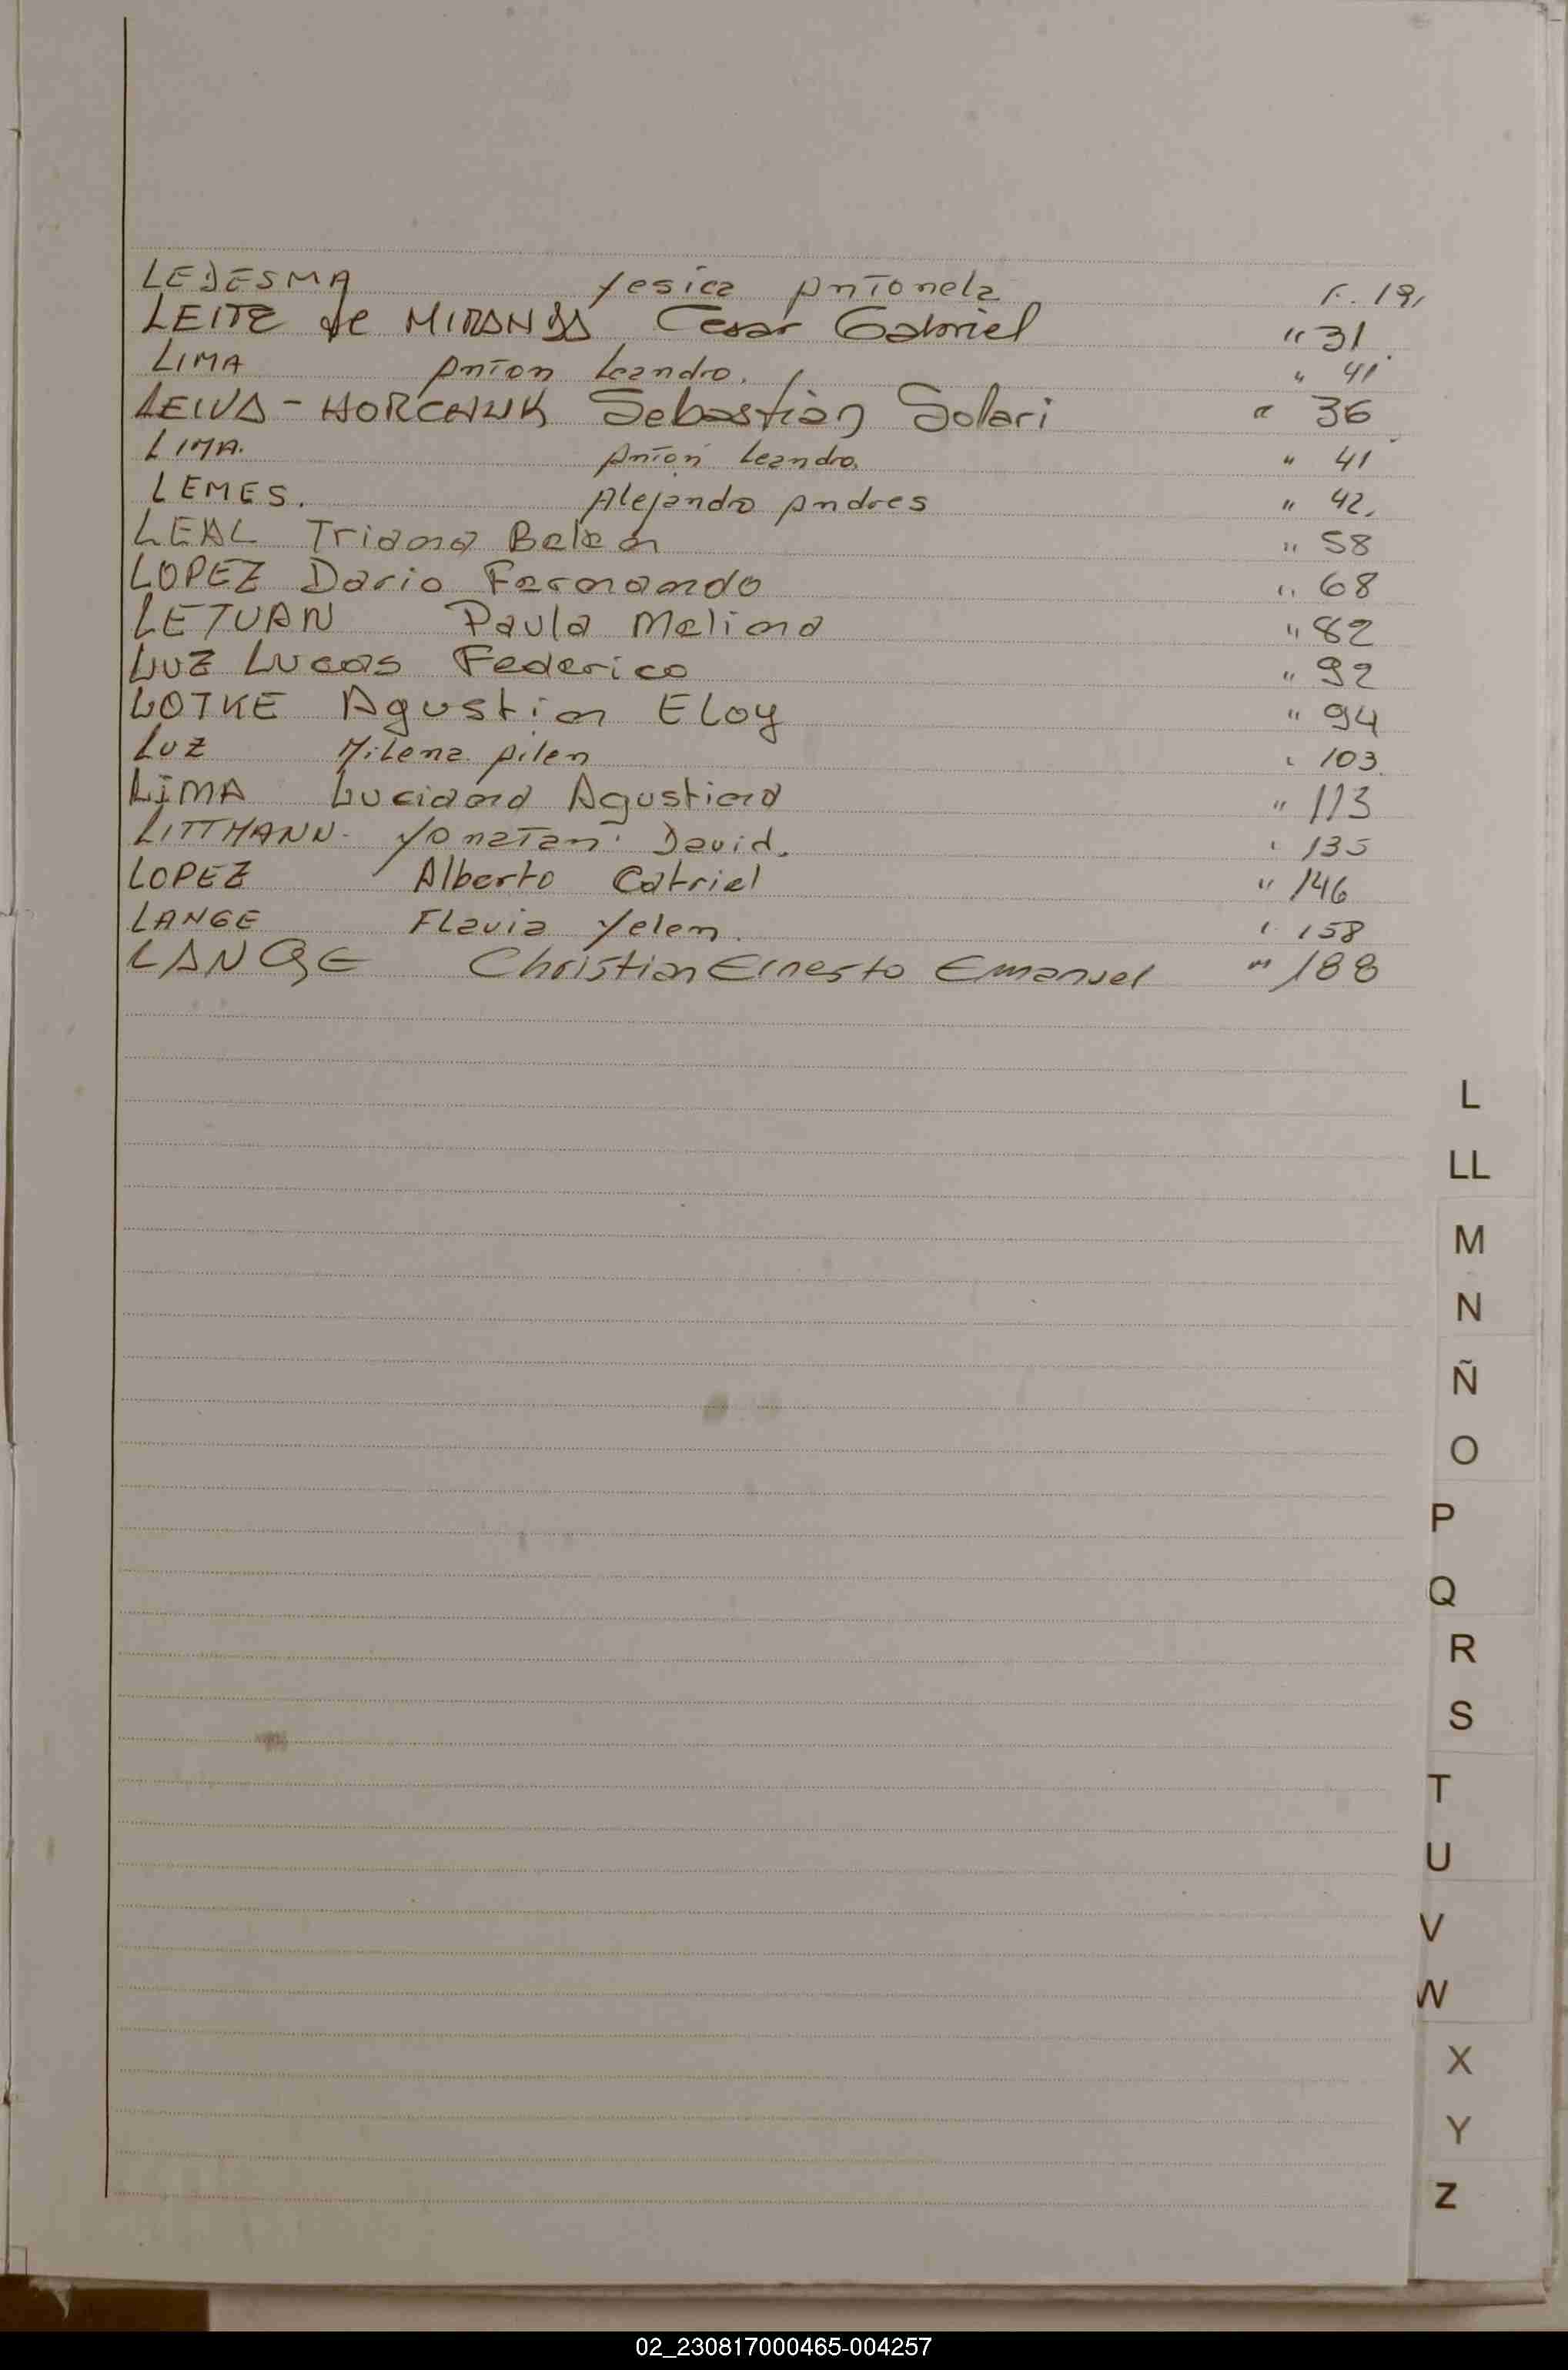 LEDESMA Yesica Antonela F. 19,
LEITE de MIRANDA Cesar Gabriel " 31
LIMA Anton Leandro. " 41
LEIVA - HORCHUK Sebastián Solari " 36
LIMA. Anton Leandro. " 41
LEMES. Alejandro Andres " 42.
LEAL Triana Belen " 58
LOPEZ Dario Fernando " 68
LETUAN Paula Melina " 82
LUZ Lucas Federico " 92
LOTKE Agustin ELoy " 94
LUZ Milena Ailen " 103.
LIMA Luciana Agustina " 113
LITTMANN. Yonatan David. " 135
LOPEZ Alberto Catriel " 146
LANGE Flavia Yelen. " 158
LANGE Christian Ernesto Emanuel " 188
L
LL
M
N
Ñ
O
P
Q
R
S
T
U
V
W
X
Y
Z
02_230817000465-004257